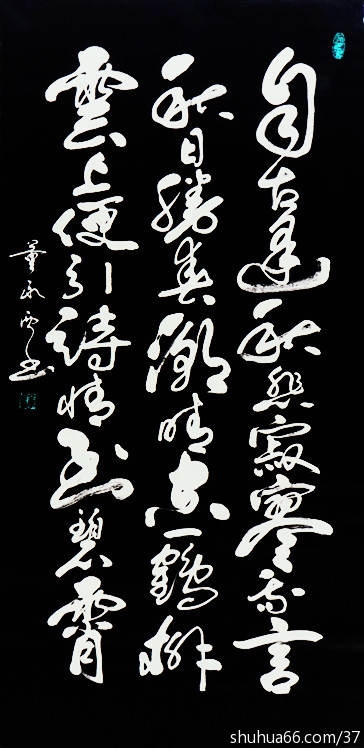 自古逢秋悲寂寥我言
秋日勝春潮晴空一鶴排
雲上便引詩情到碧霄
董永雲书
shuhua66.com/37